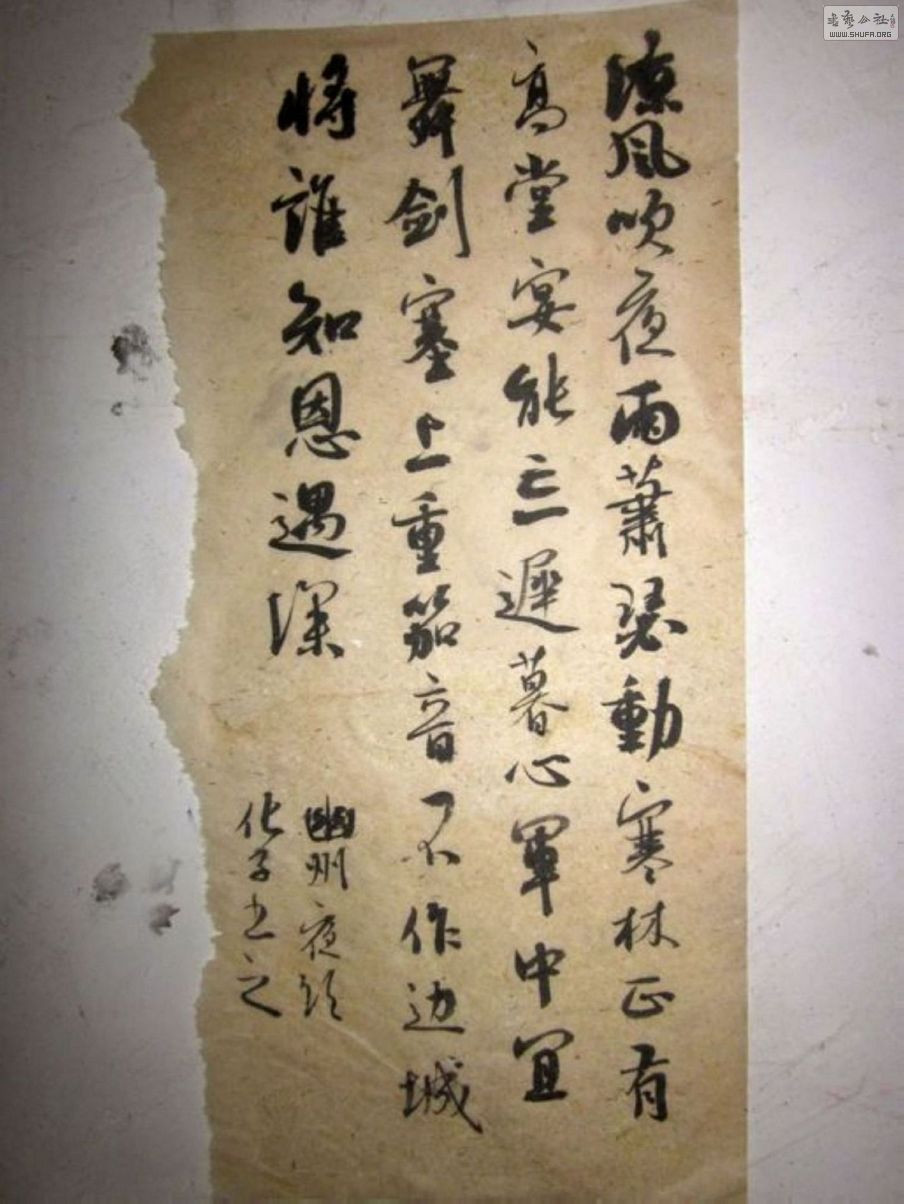 凉风吹夜雨萧瑟動寒林正有
高堂宴能亡遲暮心軍中宜
舞劍塞上重笳音不作边城
將誰知恩遇深
幽州夜飲
化子书之
书艺公社
WWW.SHUFA.ORG